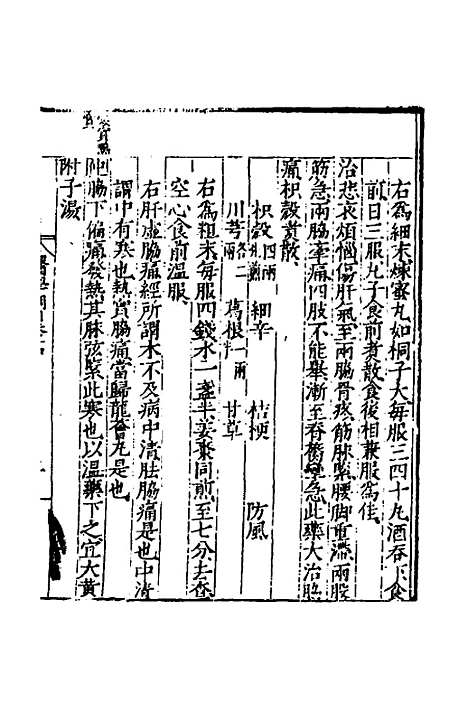 右爲細末煉蜜丸如桐子大每服三四十丸酒吞下食
前日三服丸子食前煮散食後相兼服爲佳
治悲哀煩惱傷肝氣至兩脇骨疼筋脉緊腰脚重滯兩股
筋急兩脇牽痛四肢不能舉漸至脊膂攣急此藥大治脇
痛枳殼煮散
枳殼四兩 細辛 桔梗 防風
川芎各二兩 葛根一兩半 甘草
右爲粗末每服四錢水一盞半姜棗同煎至七分去查
空心食前温服
右肝虛脇痛經所謂木不及病中清胠脇痛是也中清
謂中有寒也熱實脇痛當歸龍薈丸是也
仲 脇下偏痛發熱其脉弦緊此寒也以温藥下之宜大黄
附子湯